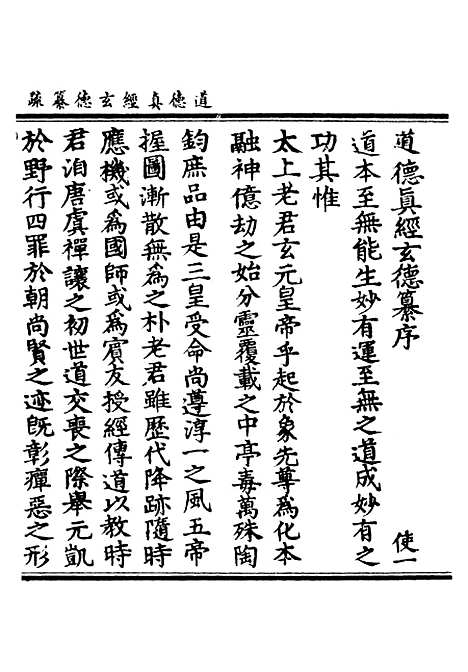 道德真經玄德纂疏
道德眞經玄德纂序 使一
道本至無能生妙有運至無之道成妙有之
功其惟
太上老君玄元皇帝乎起於象先尊為化本
融神億劫之始分靈覆載之中亭毒萬殊陶
鈞庶品由是三皇受命尚遵淳一之風五帝
握圖漸散無為之朴老君雖歷代降跡隨時
應機或為國師或為賓友授經傳道以教時
君洎唐虞禪讓之初世道交喪之際舉元凱
於野行四罪於朝尚賢之迹旣彰癉惡之形